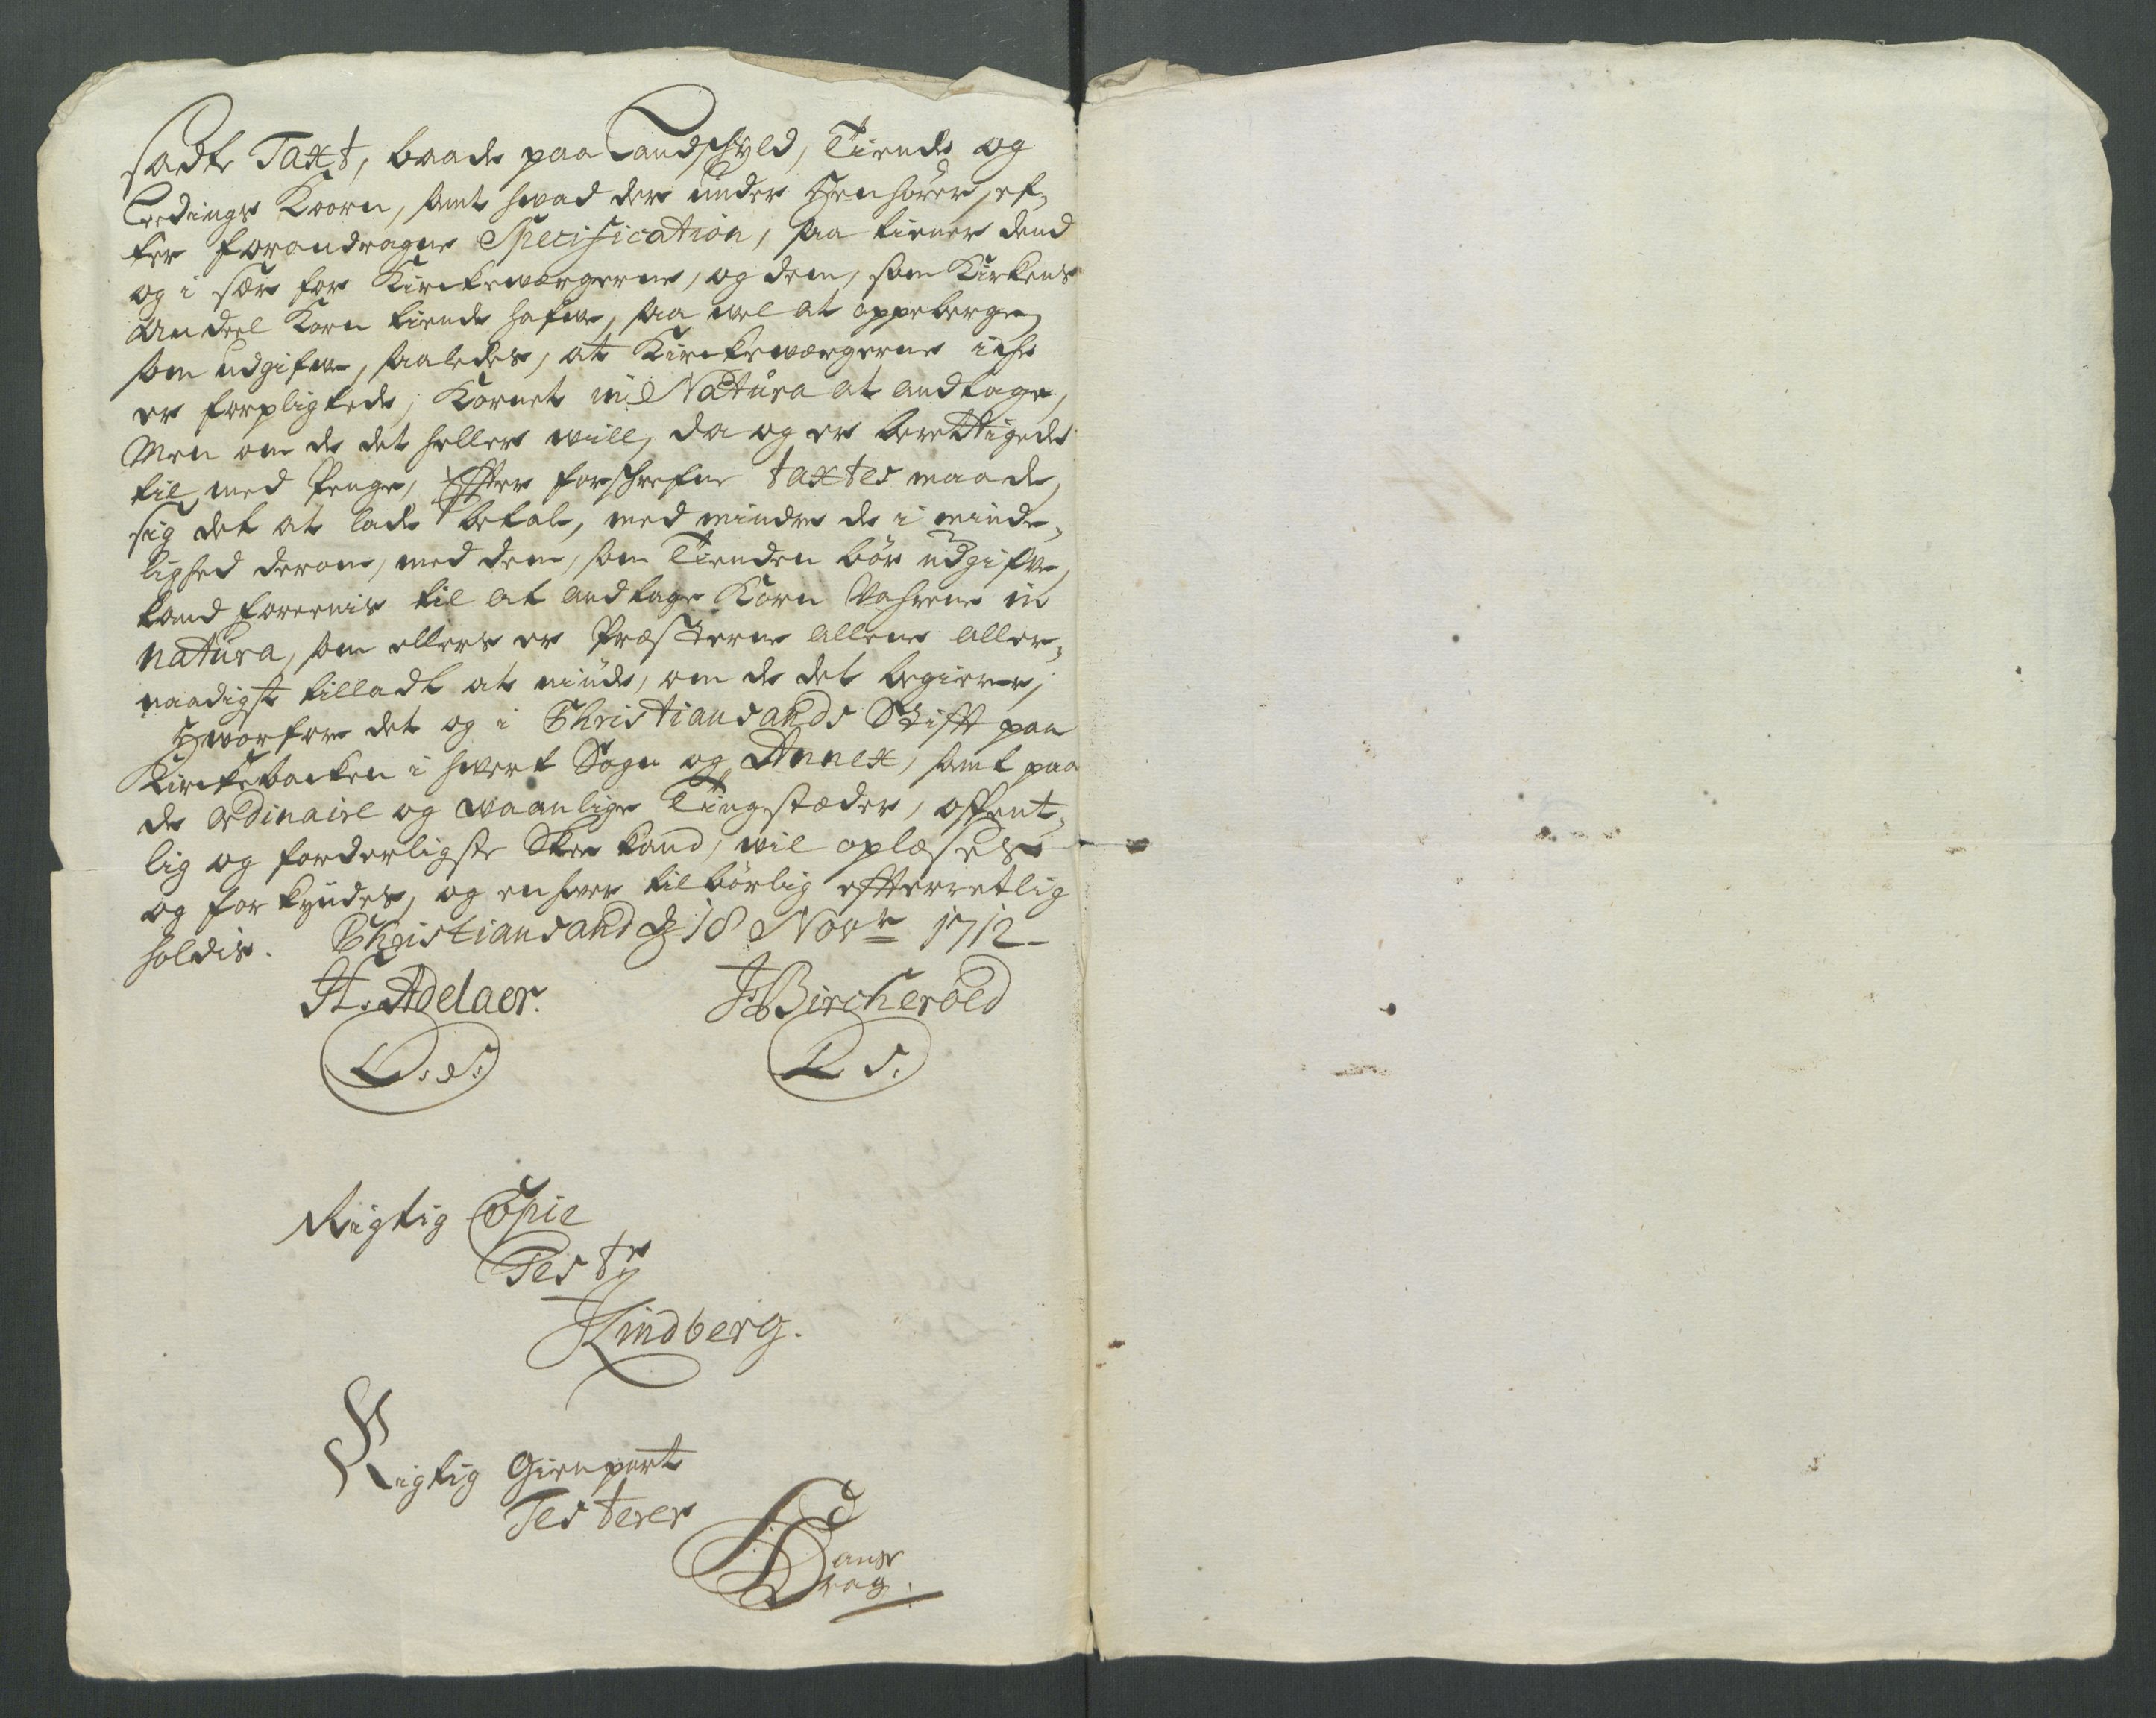 sadte Taxt, baade paa Landschyld, Tiende og
Leedings Koorn, samt hvad der under Henhører, ef-
ter forandragne Specification, saa tiener dend
og i sær for Kirckewærgerne, og dem, som Kirkens
Andeel Korn tiende hafve, saa vel at oppeberge,
som udgifve, saaledes, at Kirckeværgerne iche
er forpligtede, Kornet in Natura at andtage,
Men om de det heller will, da og er berettigede
til med Penge, Effter forschrefne taxtes maade,
sig det at lade betale, med mindre de i minde-
lighed derom, med dem, som Tienden bør udgifve,
kand foreenis til at andtage Korn Vahrene in
natura, som ellers er Præsterne allene aller-
naadigst tilladt at niude, om de det begierer;
Hworfore det og i Christiansands Stift paa
Kirckebacken i hwert Sogn og Annex, samt paa
de ordinaire og waanlige Tingstæder, offent-
lig og forderligste Skee kand, wil oplæses
og forkyndes, og enhver tilbørlig efterretlig
holdis. Christiansand d 18 Novr 1712
H. Adelaer. JBircherod
L. S. L. S.
Rigtig Copie
Testr
JLindberg.
Rigtig Gienpart
Testerer
Hans
Drag.